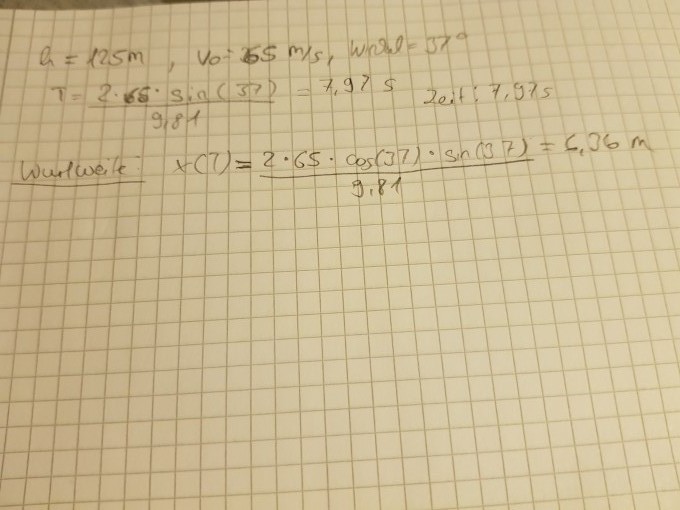 h = 125m , Vo = 65 m/s, Winkel = 37°
T = 2·65·sin(37) / 9,81 = 7,97 s Zeit: 7,97s
Wurfweite: x(T) = 2·65·cos(37)·sin(37) / 9,81 = 6,36 m